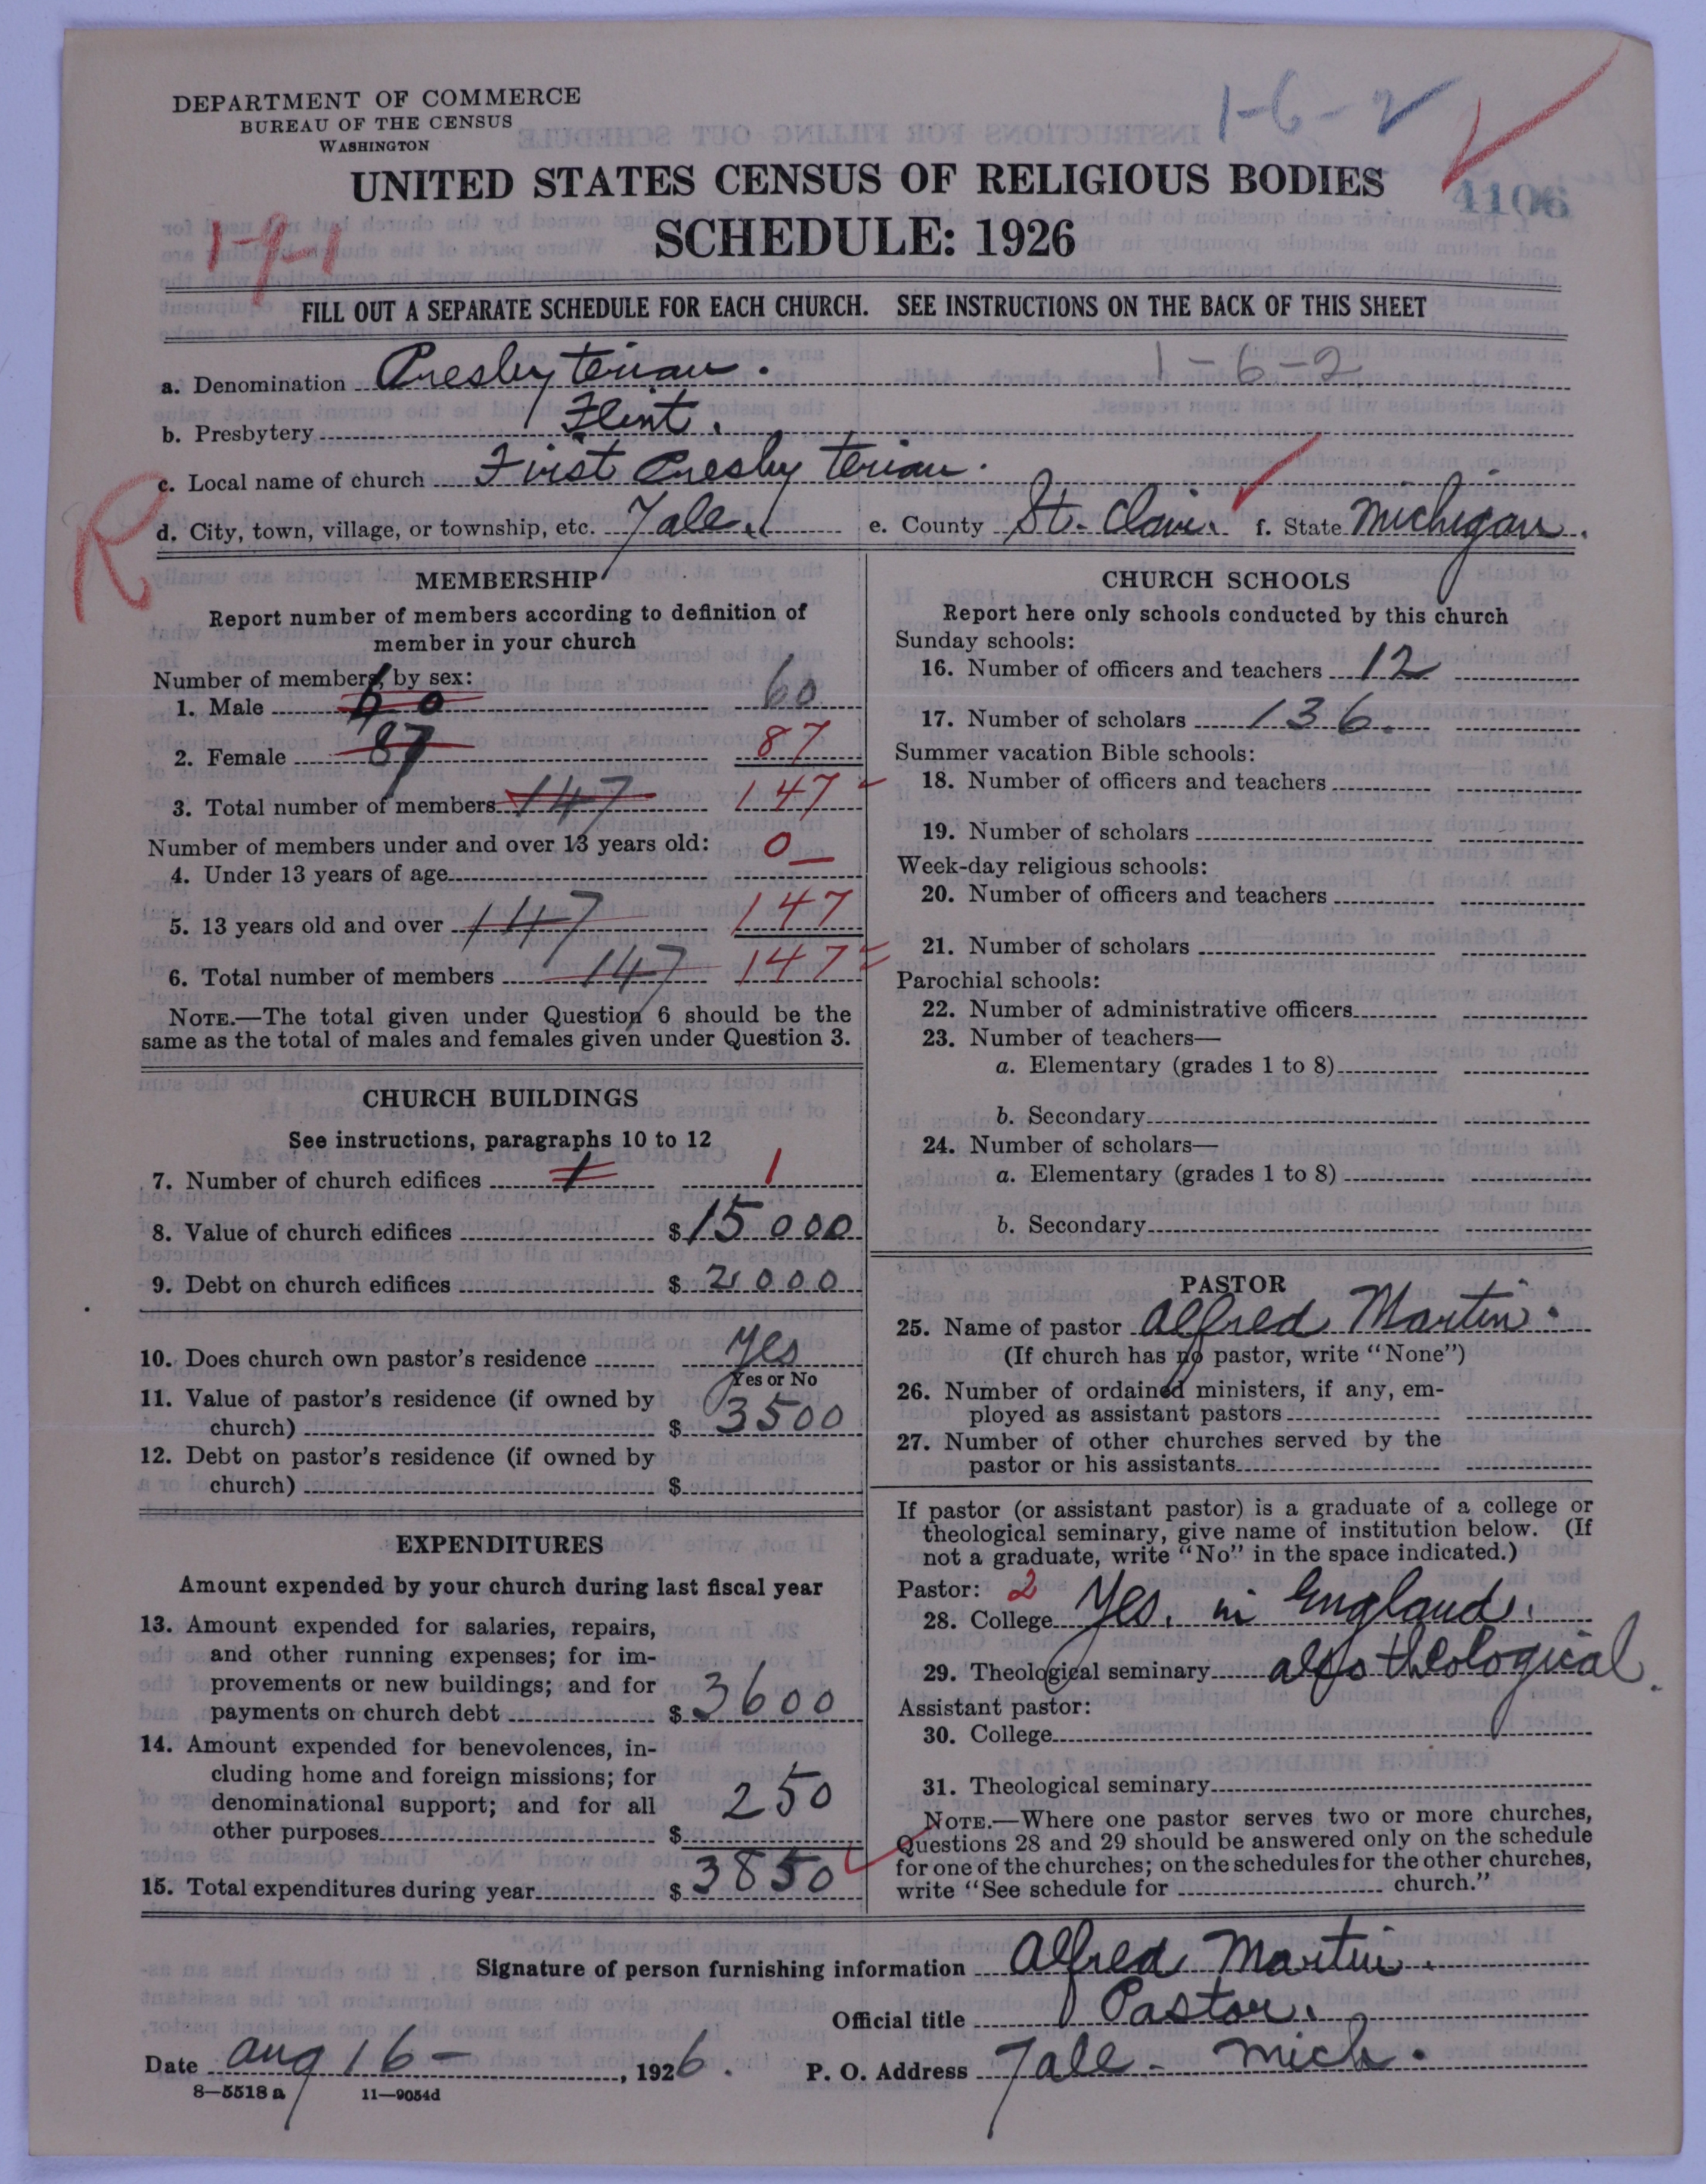 DEPARTMENT OF COMMERCE
BUREAU OF THE CENSUS
WASHINGTON
1-6-2
4106
UNITED STATES CENSUS OF RELIGIOUS BODIES
SCHEDULE: 1926
1-9-1
FILL OUT A SEPARATE SCHEDULE FOR EACH CHURCH. SEE INSTRUCTIONS ON THE BACK OF THIS SHEET
a. Denomination Presbyterian. 1-6-2
b. Presbytery Flint.
c. Local name of church First Presbyterian.
R
d. City, town, village, or township, etc. Yale. e. County St. Clair. f. State Michigan.
MEMBERSHIP
Report number of members according to definition of
member in your church
Number of members, by sex:
1. Male 60 60
2. Female 87 87
3. Total number of members 147 147
Number of members under and over 13 years old:
4. Under 13 years of age 0
5. 13 years old and over 147 147
6. Total number of members 147 147
NOTE.—The total given under Question 6 should be the
same as the total of males and females given under Question 3.
CHURCH BUILDINGS
See instructions, paragraphs 10 to 12
7. Number of church edifices 1 1
8. Value of church edifices $ 15000
9. Debt on church edifices $ 2000
10. Does church own pastor's residence Yes
Yes or No
11. Value of pastor's residence (if owned by
church) $ 3500
12. Debt on pastor's residence (if owned by
church) $
EXPENDITURES
Amount expended by your church during last fiscal year
13. Amount expended for salaries, repairs,
and other running expenses; for im-
provements or new buildings; and for
payments on church debt $ 3600
14. Amount expended for benevolences, in-
cluding home and foreign missions; for
denominational support; and for all
other purposes $ 250
15. Total expenditures during year $ 3850
CHURCH SCHOOLS
Report here only schools conducted by this church
Sunday schools:
16. Number of officers and teachers 12
17. Number of scholars 136.
Summer vacation Bible schools:
18. Number of officers and teachers
19. Number of scholars
Week-day religious schools:
20. Number of officers and teachers
21. Number of scholars
Parochial schools:
22. Number of administrative officers
23. Number of teachers—
a. Elementary (grades 1 to 8)
b. Secondary
24. Number of scholars—
a. Elementary (grades 1 to 8)
b. Secondary
PASTOR
25. Name of pastor Alfred Martin.
(If church has no pastor, write "None")
26. Number of ordained ministers, if any, em-
ployed as assistant pastors
27. Number of other churches served by the
pastor or his assistants
If pastor (or assistant pastor) is a graduate of a college or
theological seminary, give name of institution below. (If
not a graduate, write "No" in the space indicated.)
Pastor: 2
28. College Yes. in England.
29. Theological seminary also theological.
Assistant pastor:
30. College
31. Theological seminary
NOTE.—Where one pastor serves two or more churches,
Questions 28 and 29 should be answered only on the schedule
for one of the churches; on the schedules for the other churches,
write "See schedule for church."
Signature of person furnishing information Alfred Martin.
Official title Pastor.
Date Aug 16 - , 1926. P. O. Address Yale - Mich.
8—5518 a 11—9054d